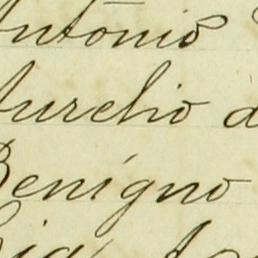 Antonio
Aurelio d
Benigno